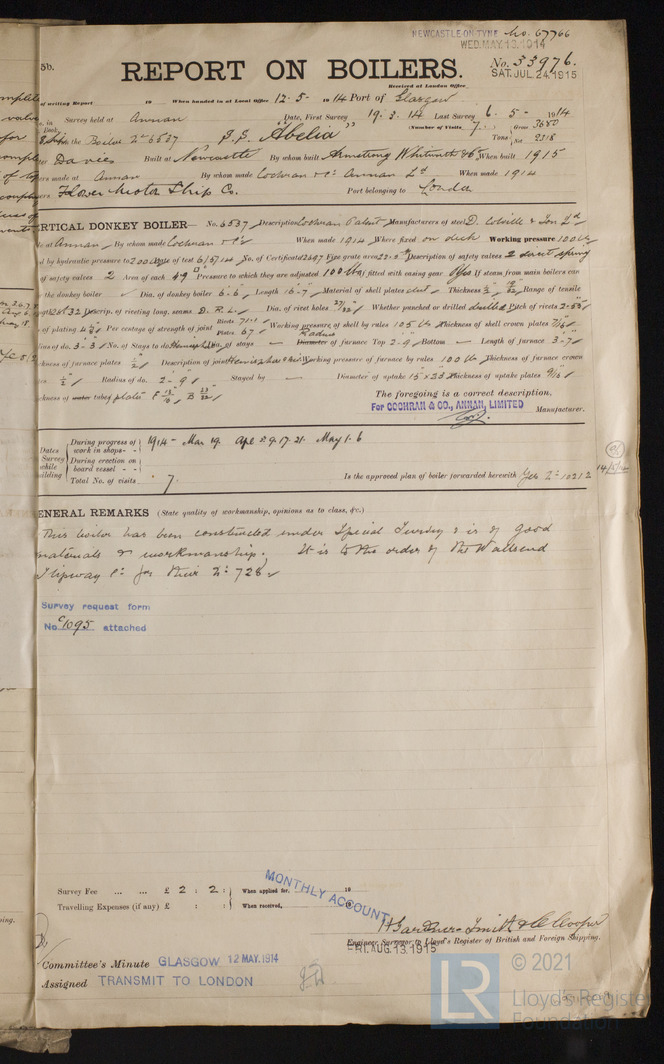 NEWCASTLE-ON-TYNE No. 67766
WED. MAY. 13. 1914
5b.
REPORT ON BOILERS.
No. 33976.
SAT. JUL 24. 1915
Received at London Office
of writing Report 19 When handed in at Local Office 12. 5. 1914 Port of Glasgow
Survey held at Annan Date, First Survey 19. 3. 14 Last Survey 6. 5. 1914
the Boiler No 6537 S.S. "Abelia" (Number of Visits 7) Tons Gross 3650 Net 2318
Davies Built at Newcastle By whom built Armstrong Whitworth & Co When built 1915
ers made at Annan By whom made Cochran & Co Annan Ld When made 1914
Flower Motor Ship Co. Port belonging to London
RTICAL DONKEY BOILER— No. 6537 Description Cochran Patent Manufacturers of steel D. Colville & Son Ld
de at Annan By whom made Cochran & Co When made 1914 Where fixed on deck Working pressure 100 lbs
ed by hydraulic pressure to 200 Date of test 6/5/14 No. of Certificate 12697 Fire grate area 22.5 Description of safety valves 2 direct spring
of safety valves 2 Area of each 4.9 Pressure to which they are adjusted 100 lbs If fitted with easing gear Yes If steam from main boilers can
the donkey boiler Dia. of donkey boiler 6-6 Length 15-7 Material of shell plates steel Thickness Range of tensile
28 to 32 Descrip. of riveting long. seams D. R. L. Dia. of rivet holes 27/32 Whether punched or drilled drilled Pitch of rivets
of plating Per centage of strength of joint Rivets 71.1 Plates 67 Working pressure of shell by rules 105 lbs Thickness of shell crown plates 9/16
Radius of do. 3-3 No. of Stays to do. Hemispher Dia. of stays — Radius Diameter of furnace Top 2-9 Bottom — Length of furnace 3-7
ckness of furnace plates 1/2 Description of joint Hemispherical Working pressure of furnace by rules 100 lbs Thickness of furnace crown
es 1/2 Radius of do. 2-9 Stayed by — Diameter of uptake 15 x 23 Thickness of uptake plates 9/16
ckness of water tube plates F 13/16 B 23/32
The foregoing is a correct description.
For COCHRAN & CO., ANNAN, LIMITED Manufacturer.
Dates of Survey while building
During progress of work in shops- - 1914 - Mar 19. Apl 8. 9. 17. 21. May 1. 6
During erection on board vessel - -
Total No. of visits 7. Is the approved plan of boiler forwarded herewith Yes No 10212
14/5/14
ENERAL REMARKS (State quality of workmanship, opinions as to class, &c.)
This boiler has been constructed under Special Survey & is of good
materials & workmanship. It is to the order of The Wallsend
Slipway Co for their No 728
Survey request form
No. C1095 attached
Survey Fee ... ... £ 2 : 2 : When applied for, 19
Travelling Expenses (if any) £ : : When received, 19
MONTHLY ACCOUNT
H Gardner-Smith & C Cooper
Engineer Surveyor to Lloyd's Register of British and Foreign Shipping.
FRI. AUG. 13. 1915
Committee's Minute GLASGOW 12 MAY. 1914
Assigned TRANSMIT TO LONDON
LR
© 2021
Lloyd's Register
Foundation